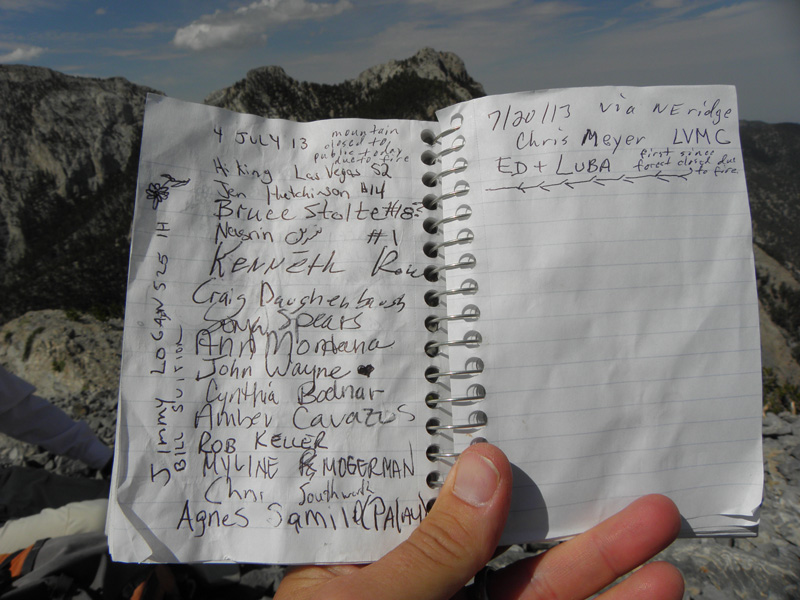 4 JULY 13
mountain
closed to
public today
due to fire
Hiking Las Vegas 52
Jen Hutchinson #14
Bruce Stolte #18
Nasrin نسرین #1
KENNETH
Craig Daughenbaugh
Sonja Spears
Ann Montana
John Wayne
Cynthia Bodnar
Amber Cavazos
ROB KELLER
MYLINE MOGERMAN
Chris Southwick
Agnes Samilo (PALAU)
Jimmy LOGAN 525 IH
BILL SUITIOR
7/20/13 via NE ridge
Chris Meyer LVMC
ED + LUBA
first since
forest closed due
to fire